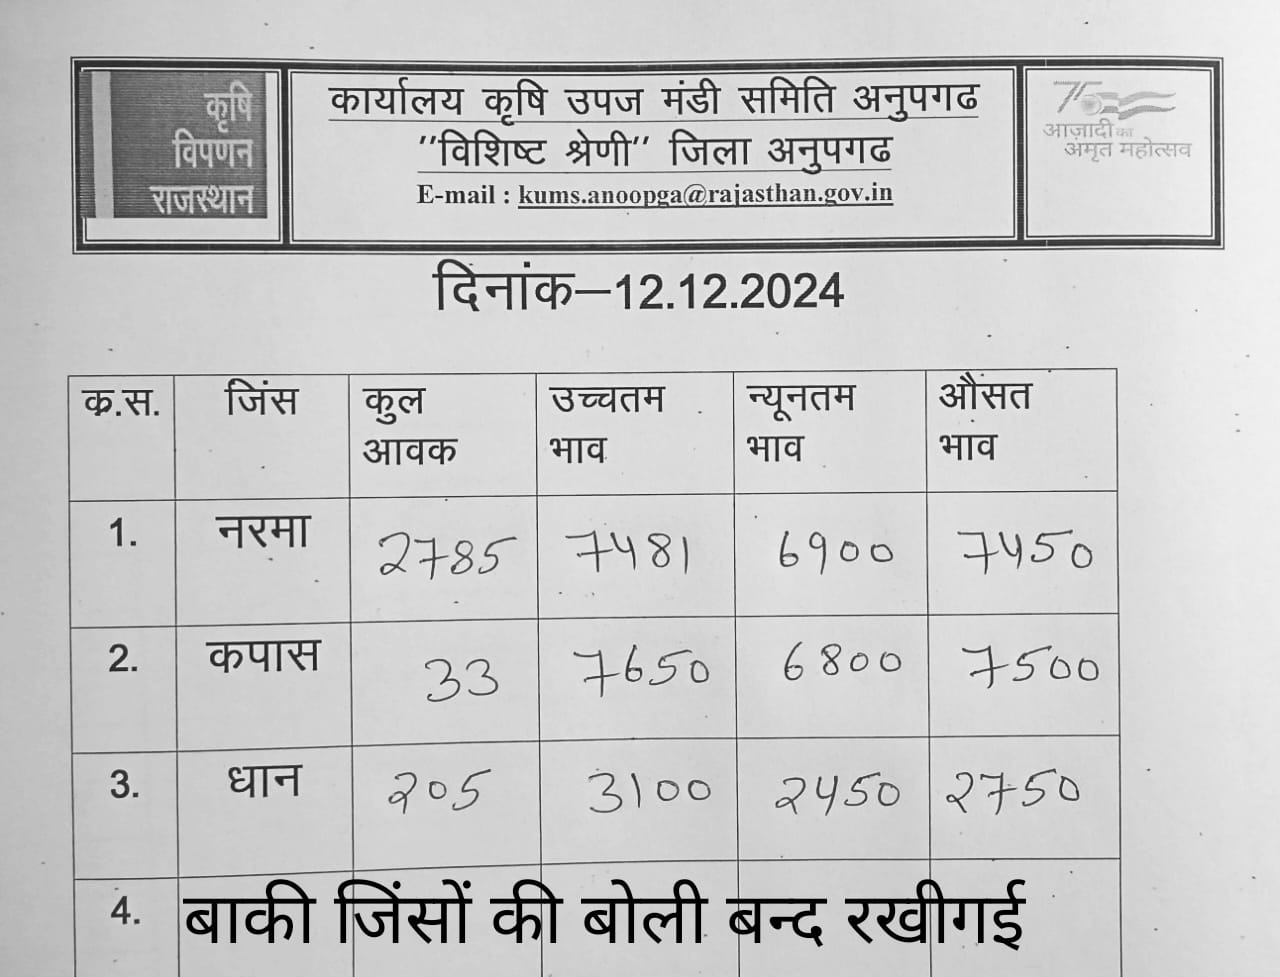 कृषि
विपणन
राजस्थान
कार्यालय कृषि उपज मंडी समिति अनुपगढ
"विशिष्ट श्रेणी" जिला अनुपगढ
E-mail : kums.anoopga@rajasthan.gov.in
75
आज़ादी का
अमृत महोत्सव
दिनांक–12.12.2024
क.स. जिंस कुल आवक उच्चतम भाव न्यूनतम भाव औसत भाव
1. नरमा 2785 7481 6900 7450
2. कपास 33 7650 6800 7500
3. धान 205 3100 2450 2750
4. बाकी जिंसों की बोली बन्द रखीगई